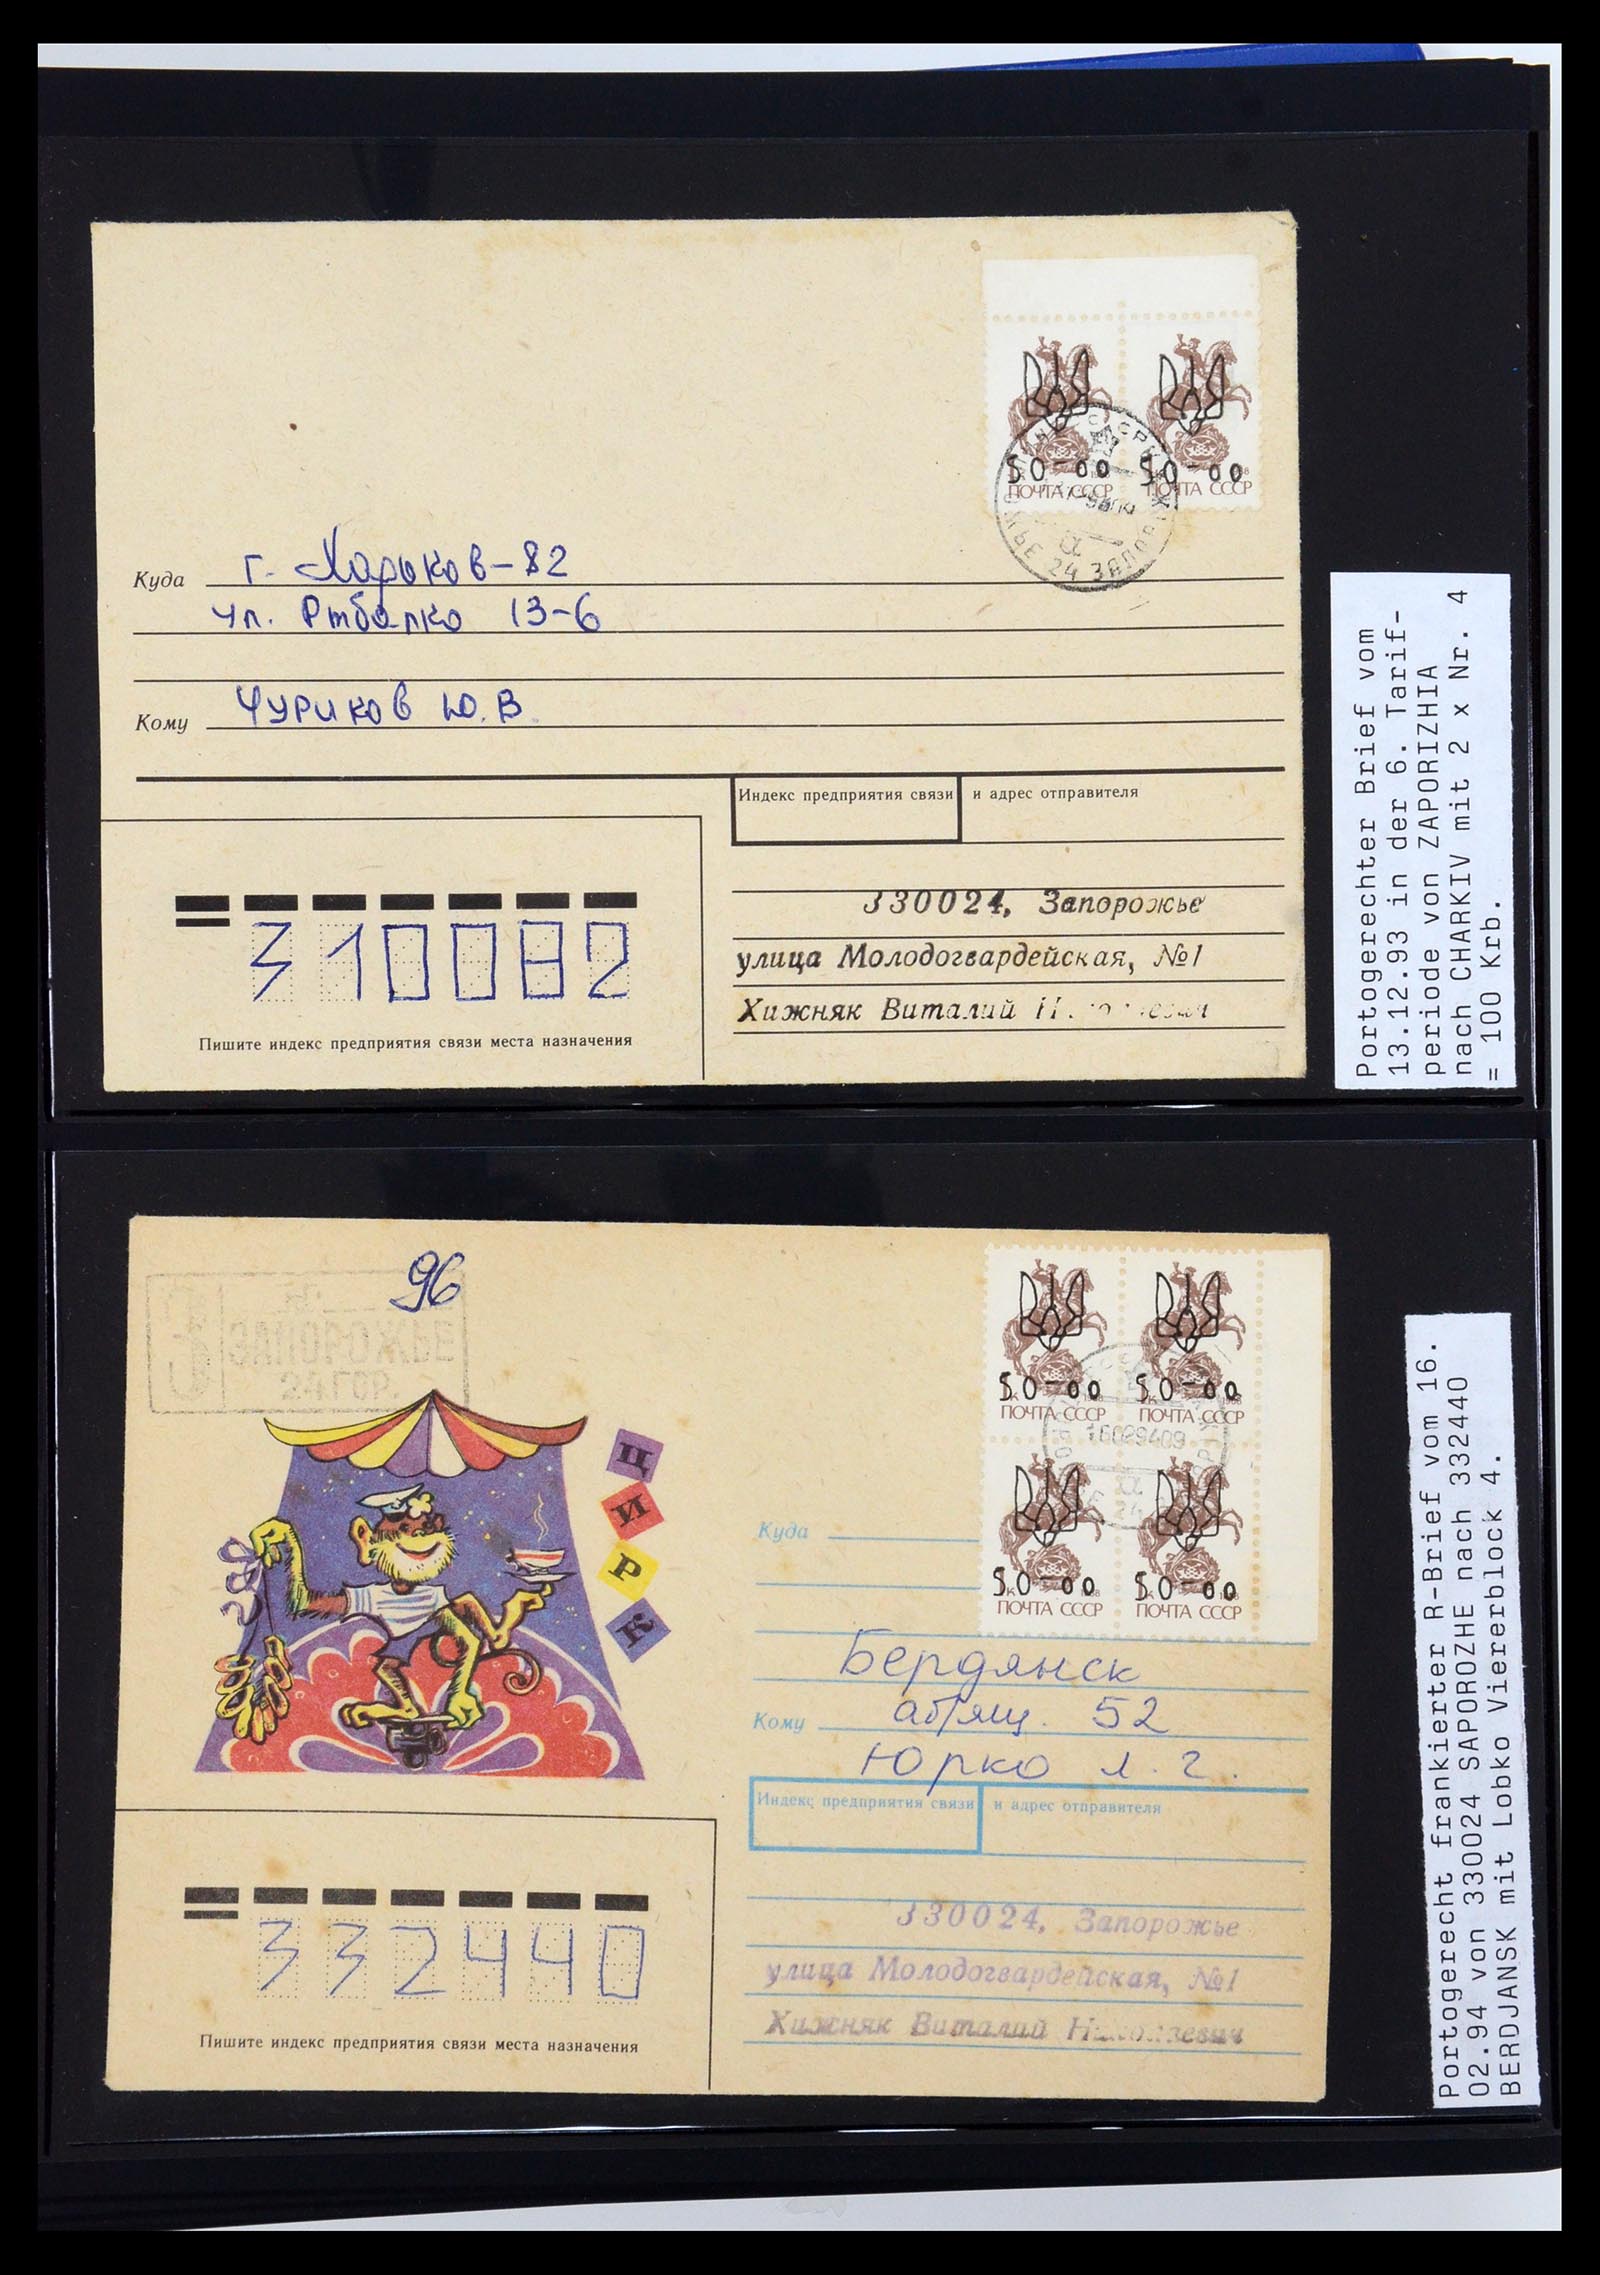 50-00 50-00
ПОЧТА СССР ПОЧТА СССР
24 ЗАПОРОЖЬЕ
Куда г. Харьков-82
ул. Рыбалко 13-6
Кому Чуриков Ю.В.
Индекс предприятия связи и адрес отправителя
330024, Запорожье
улица Молодогвардейская, №1
Хижняк Виталий
310082
Пишите индекс предприятия связи места назначения
Portogerechter Brief vom
13.12.93 in der 6. Tarif-
periode von ZAPORIZHIA
nach CHARKIV mit 2 x Nr. 4
= 100 Krb.
96
З
ЗАПОРОЖЬЕ
24 ГОР.
ЦИРК
50-00 50-00
1988
ПОЧТА СССР ПОЧТА СССР
16029409
50-00 50-00
ПОЧТА СССР ПОЧТА СССР
Куда
Бердянск
Кому аб/ящ. 52
Юрко Л. Г.
Индекс предприятия связи и адрес отправителя
330024, Запорожье
улица Молодогвардейская, №1
Хижняк Виталий Николаевич
332440
Пишите индекс предприятия связи места назначения
Portogerecht frankierter R-Brief vom 16.
02.94 von 330024 SAPOROZHE nach 332440
BERDJANSK mit Lobko Viererblock 4.